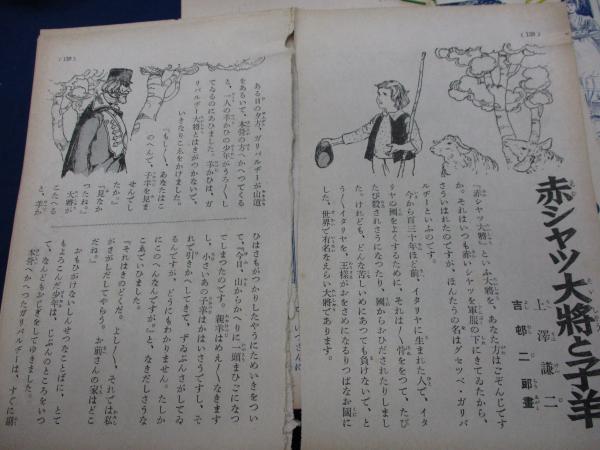 (138)
赤シャツ大將と子羊
上澤謙二
吉邨二郎畫
『赤シャツ大將』といふ大將を、あなた方はごぞんじです
か。それはいつも赤いシャツを軍服の下にきてゐたから、
さういはれたのですが、ほんたうの名はグセツペ・ガリバ
ルヂーといふのです。
今から百三十年ほど前、イタリヤに生まれた人で、イタ
リヤの國をよくするために、それは〳〵骨ををつて、たび
たび殺されさうになつたり、國からおひだされたりしまし
た。けれども、どんな苦しいめにあつても負けないで、と
う〳〵イタリヤを、王樣がおをさめになるりつぱなお國に
した、世界で有名なえらい大將であります。
(139)
ある日の夕方、ガリバルヂーが山道
をあるいて、本營の方へかへつてくる
と、一人の羊かひの少年がうろ〳〵し
てゐるのにあひました。羊かひは、ガ
リバルヂー大將とはきがつかないで、
いきなりこゑをかけました。
『もし〳〵、あなたはこ
のへんで、子羊を見ま
せんでし
たか。』
『見なか
つたね。』
大將が
こたへる
と、羊か
ひはさもがつかりしたやうにためいきをつい
て、『今日、山からかへりに一頭まひごになつ
てしまつたのです。親羊はめえ〳〵なきます
し、小さいあの子羊はかはいさうですし、そ
れで引きかへしてきて、ずゐぶんさがしてゐ
るんですが、どうにもわかりません。たしか
にこのへんなんですが。』と、なきだしさうな
こゑでいひました。
『それはきのどくだ。よし〳〵、それでは私
がさがしだしてやらう。お前さんの家はどこ
だね。』
おもひがけないしんせつなことばに、とて
もよろこんだ少年は、じぶんのところをいつ
て、なんどもおじぎをしてゆきました。
本營へかへつたガリバルヂーは、すぐに副